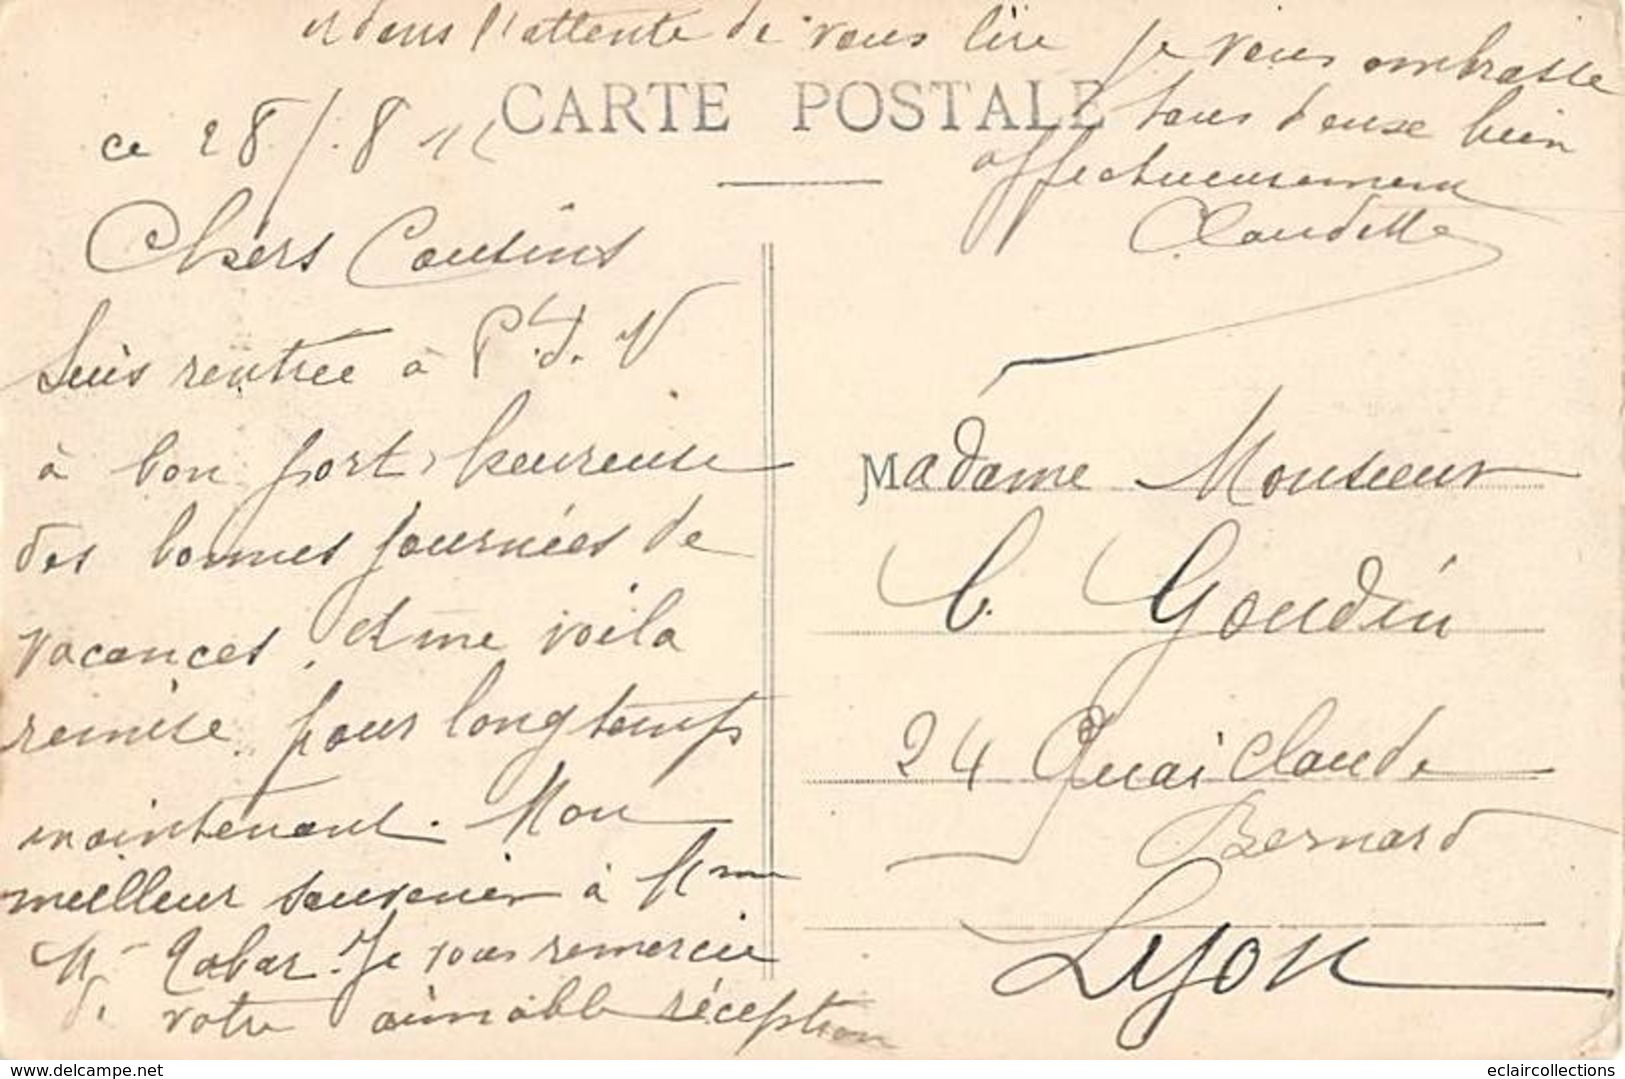 et dans l'attente de vous lire je vous embrasse
tous deux bien
affectueusement
Claudette
CARTE POSTALE
ce 28/.8 12
Chers Cousins
Suis rentrée à P.d.V
à bon port, heureuse
des bonnes journées de
vacances, et me voila
remise pour longtemps
maintenant. Mon
meilleur souvenir à Mme
Mr Je vous remercie
de votre aimable réception
Madame Monsieur
C. Goudin
24 Quai Claude
Bernard
Lyon
www.delcampe.net
eclaircollections